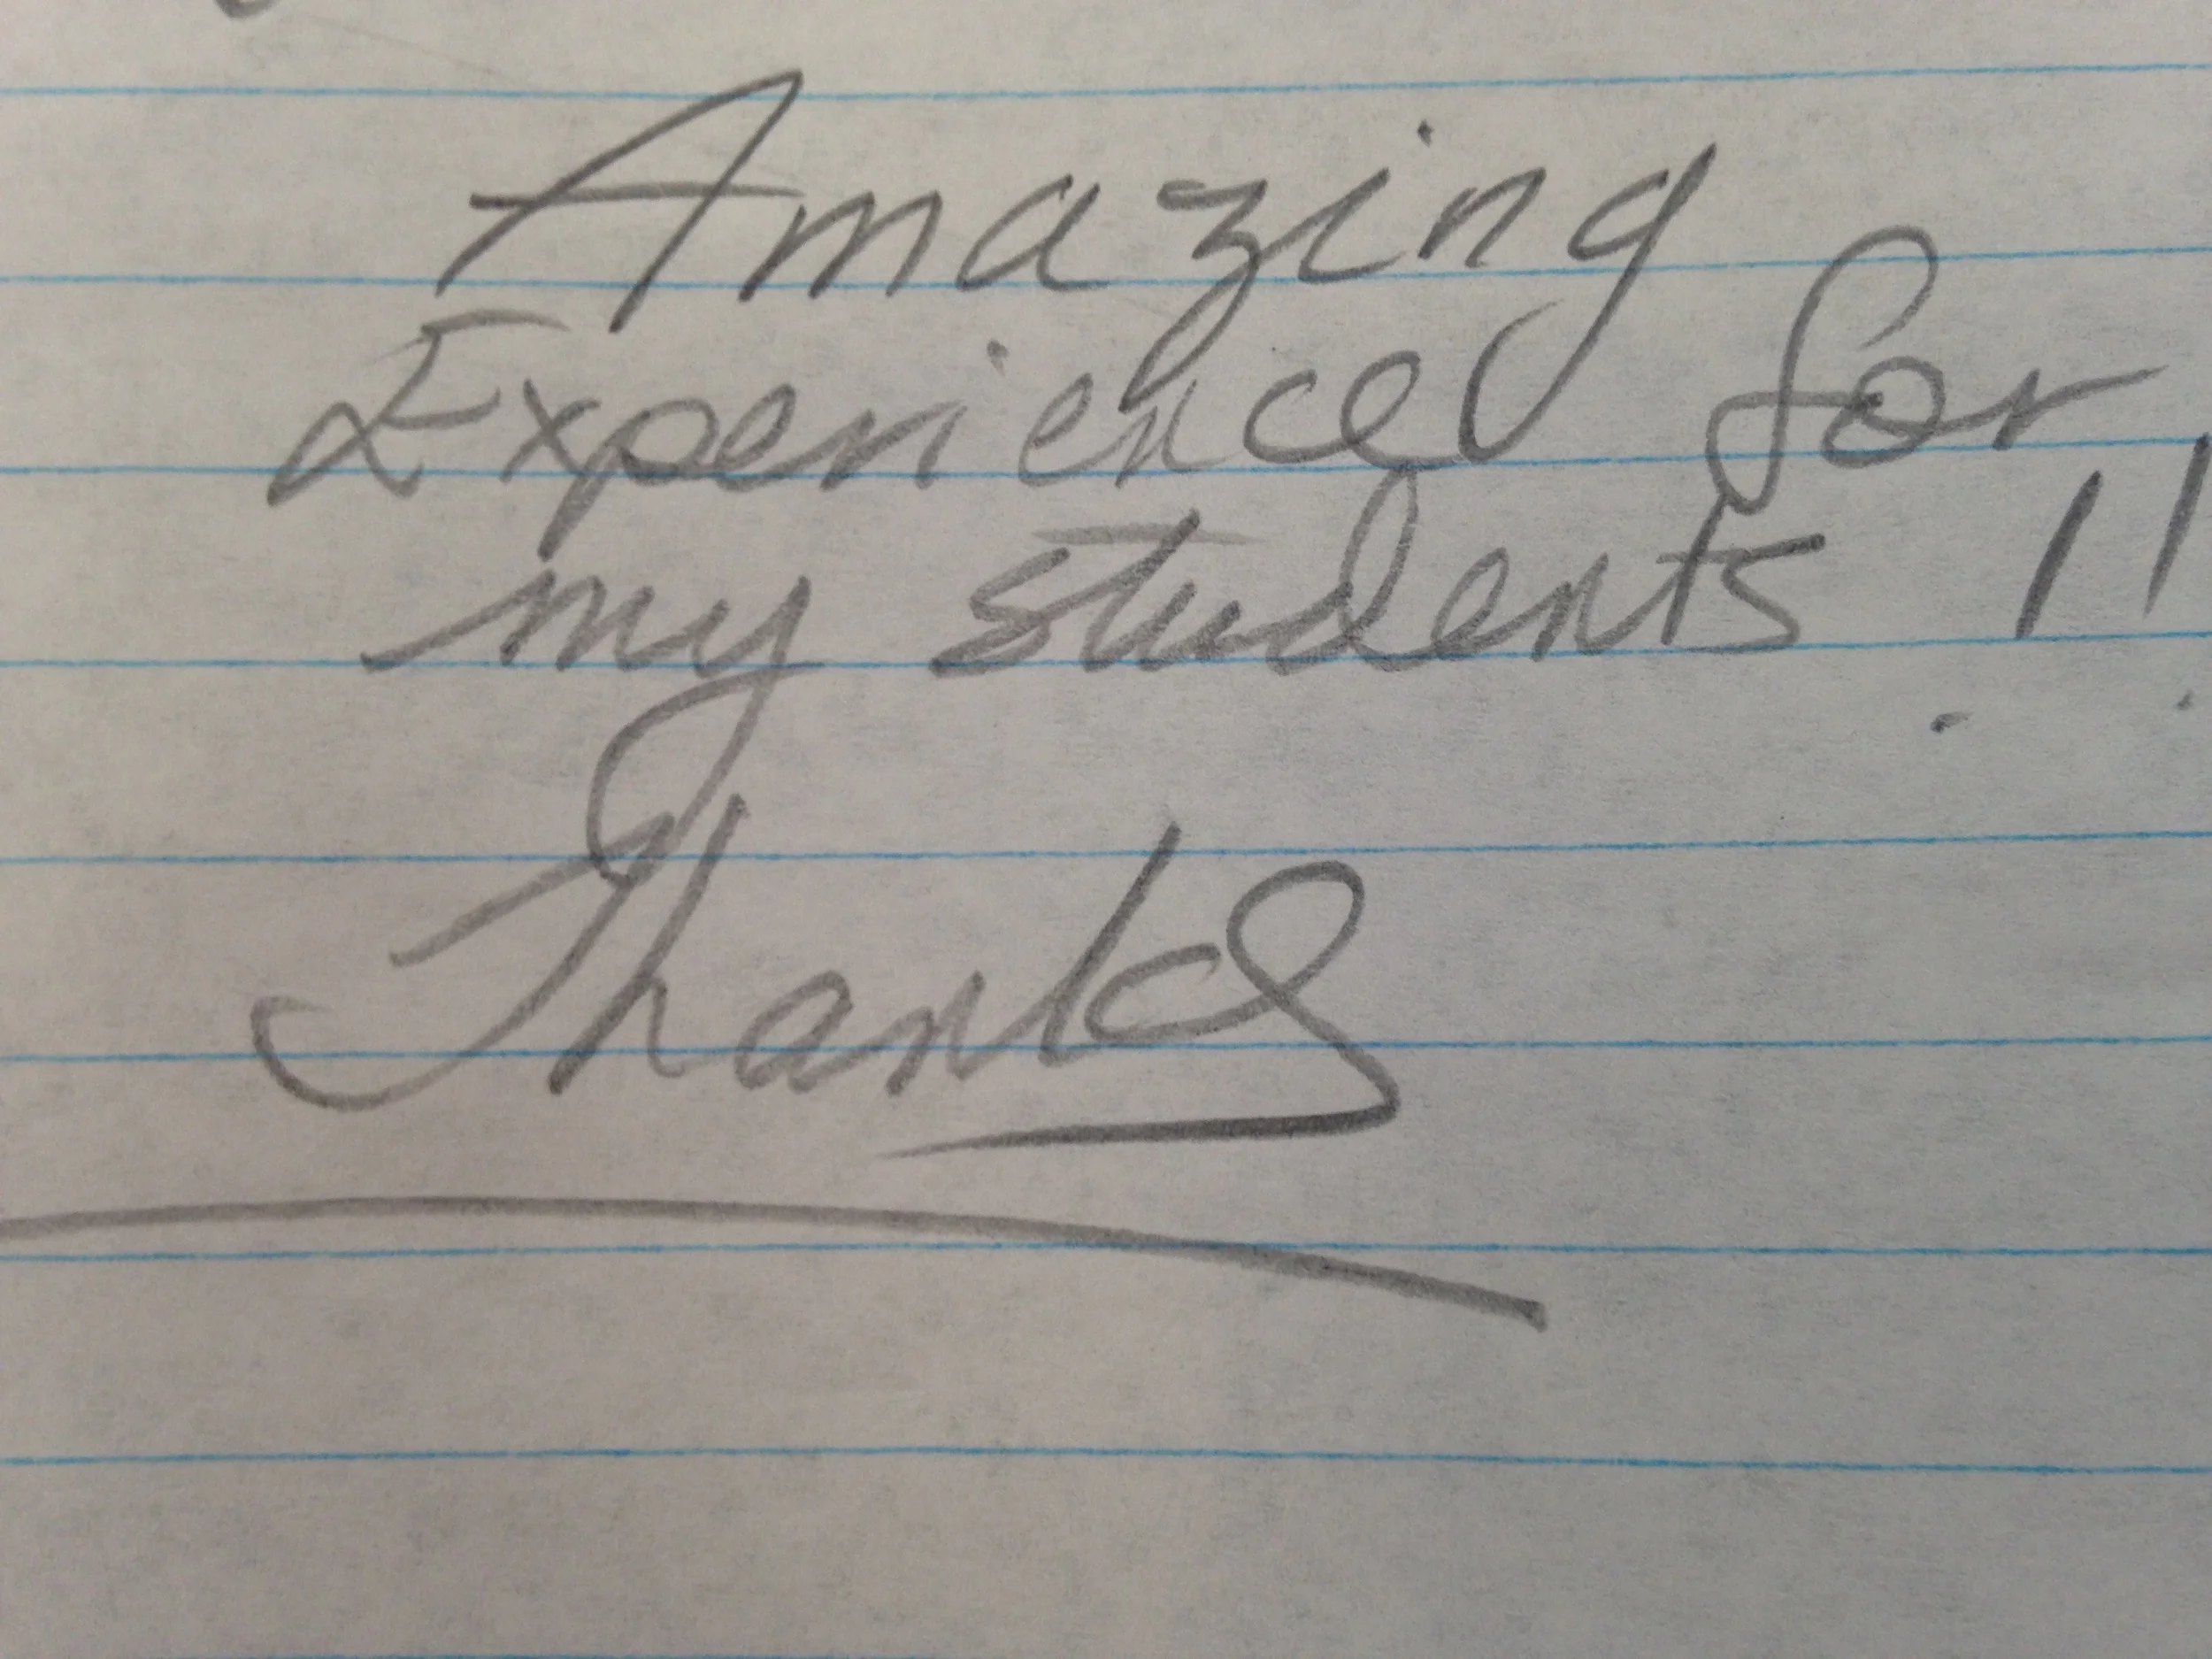 Amazing
Experience for
my students !!
Thanks